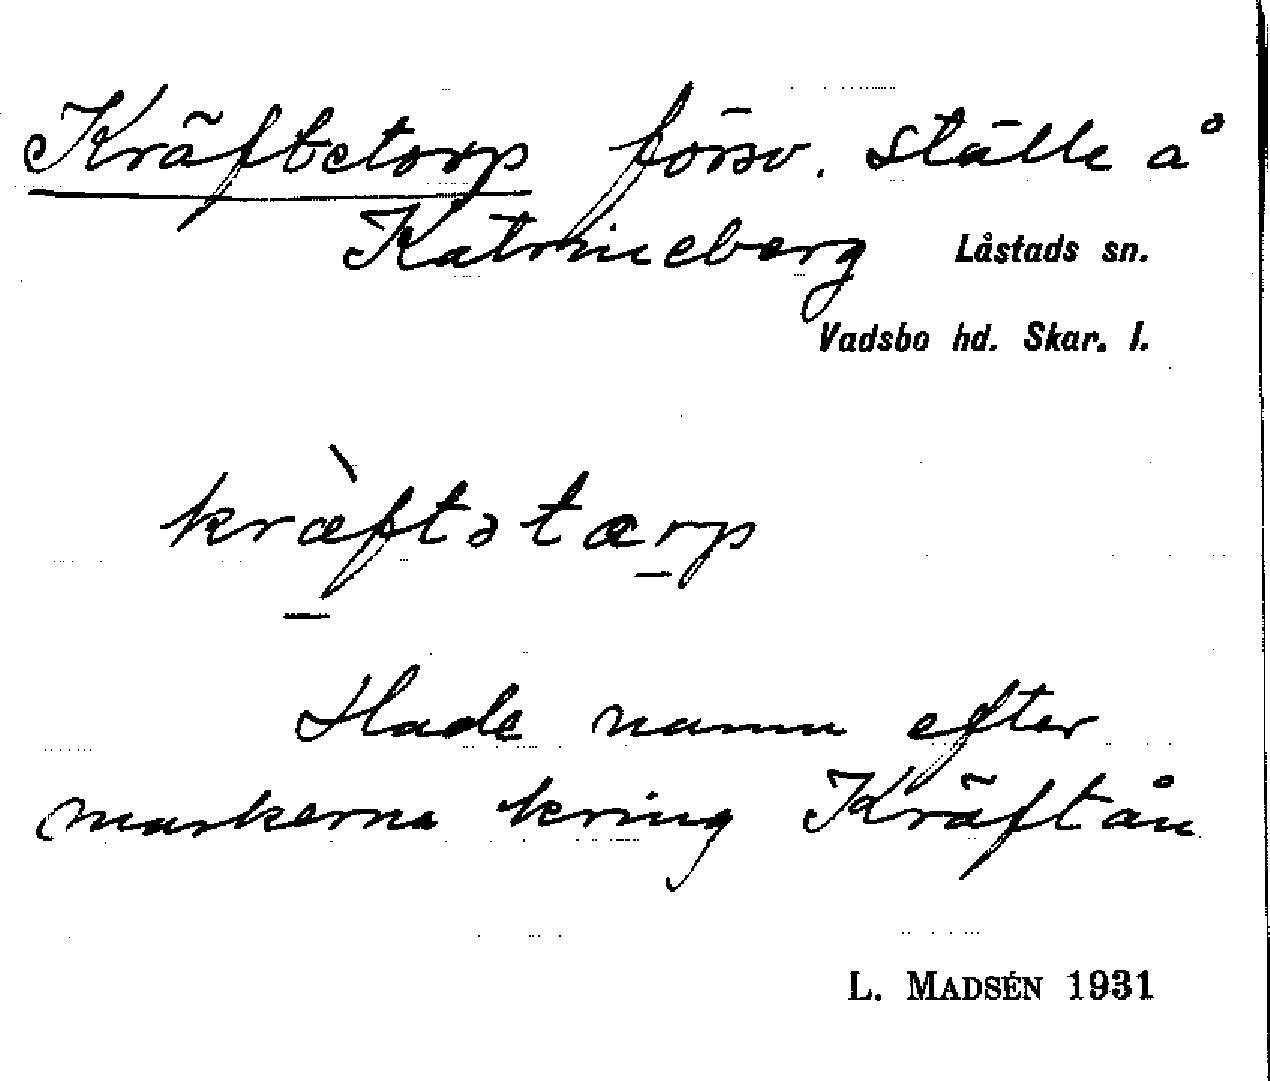 Kräftetorp försv. ställe å
Katrineberg Låstads sn.
Vadsbo hd. Skar. l.
kræ̀ftətærp
Hade namn efter
markerna kring Kräftån
L. MADSÉN 1931